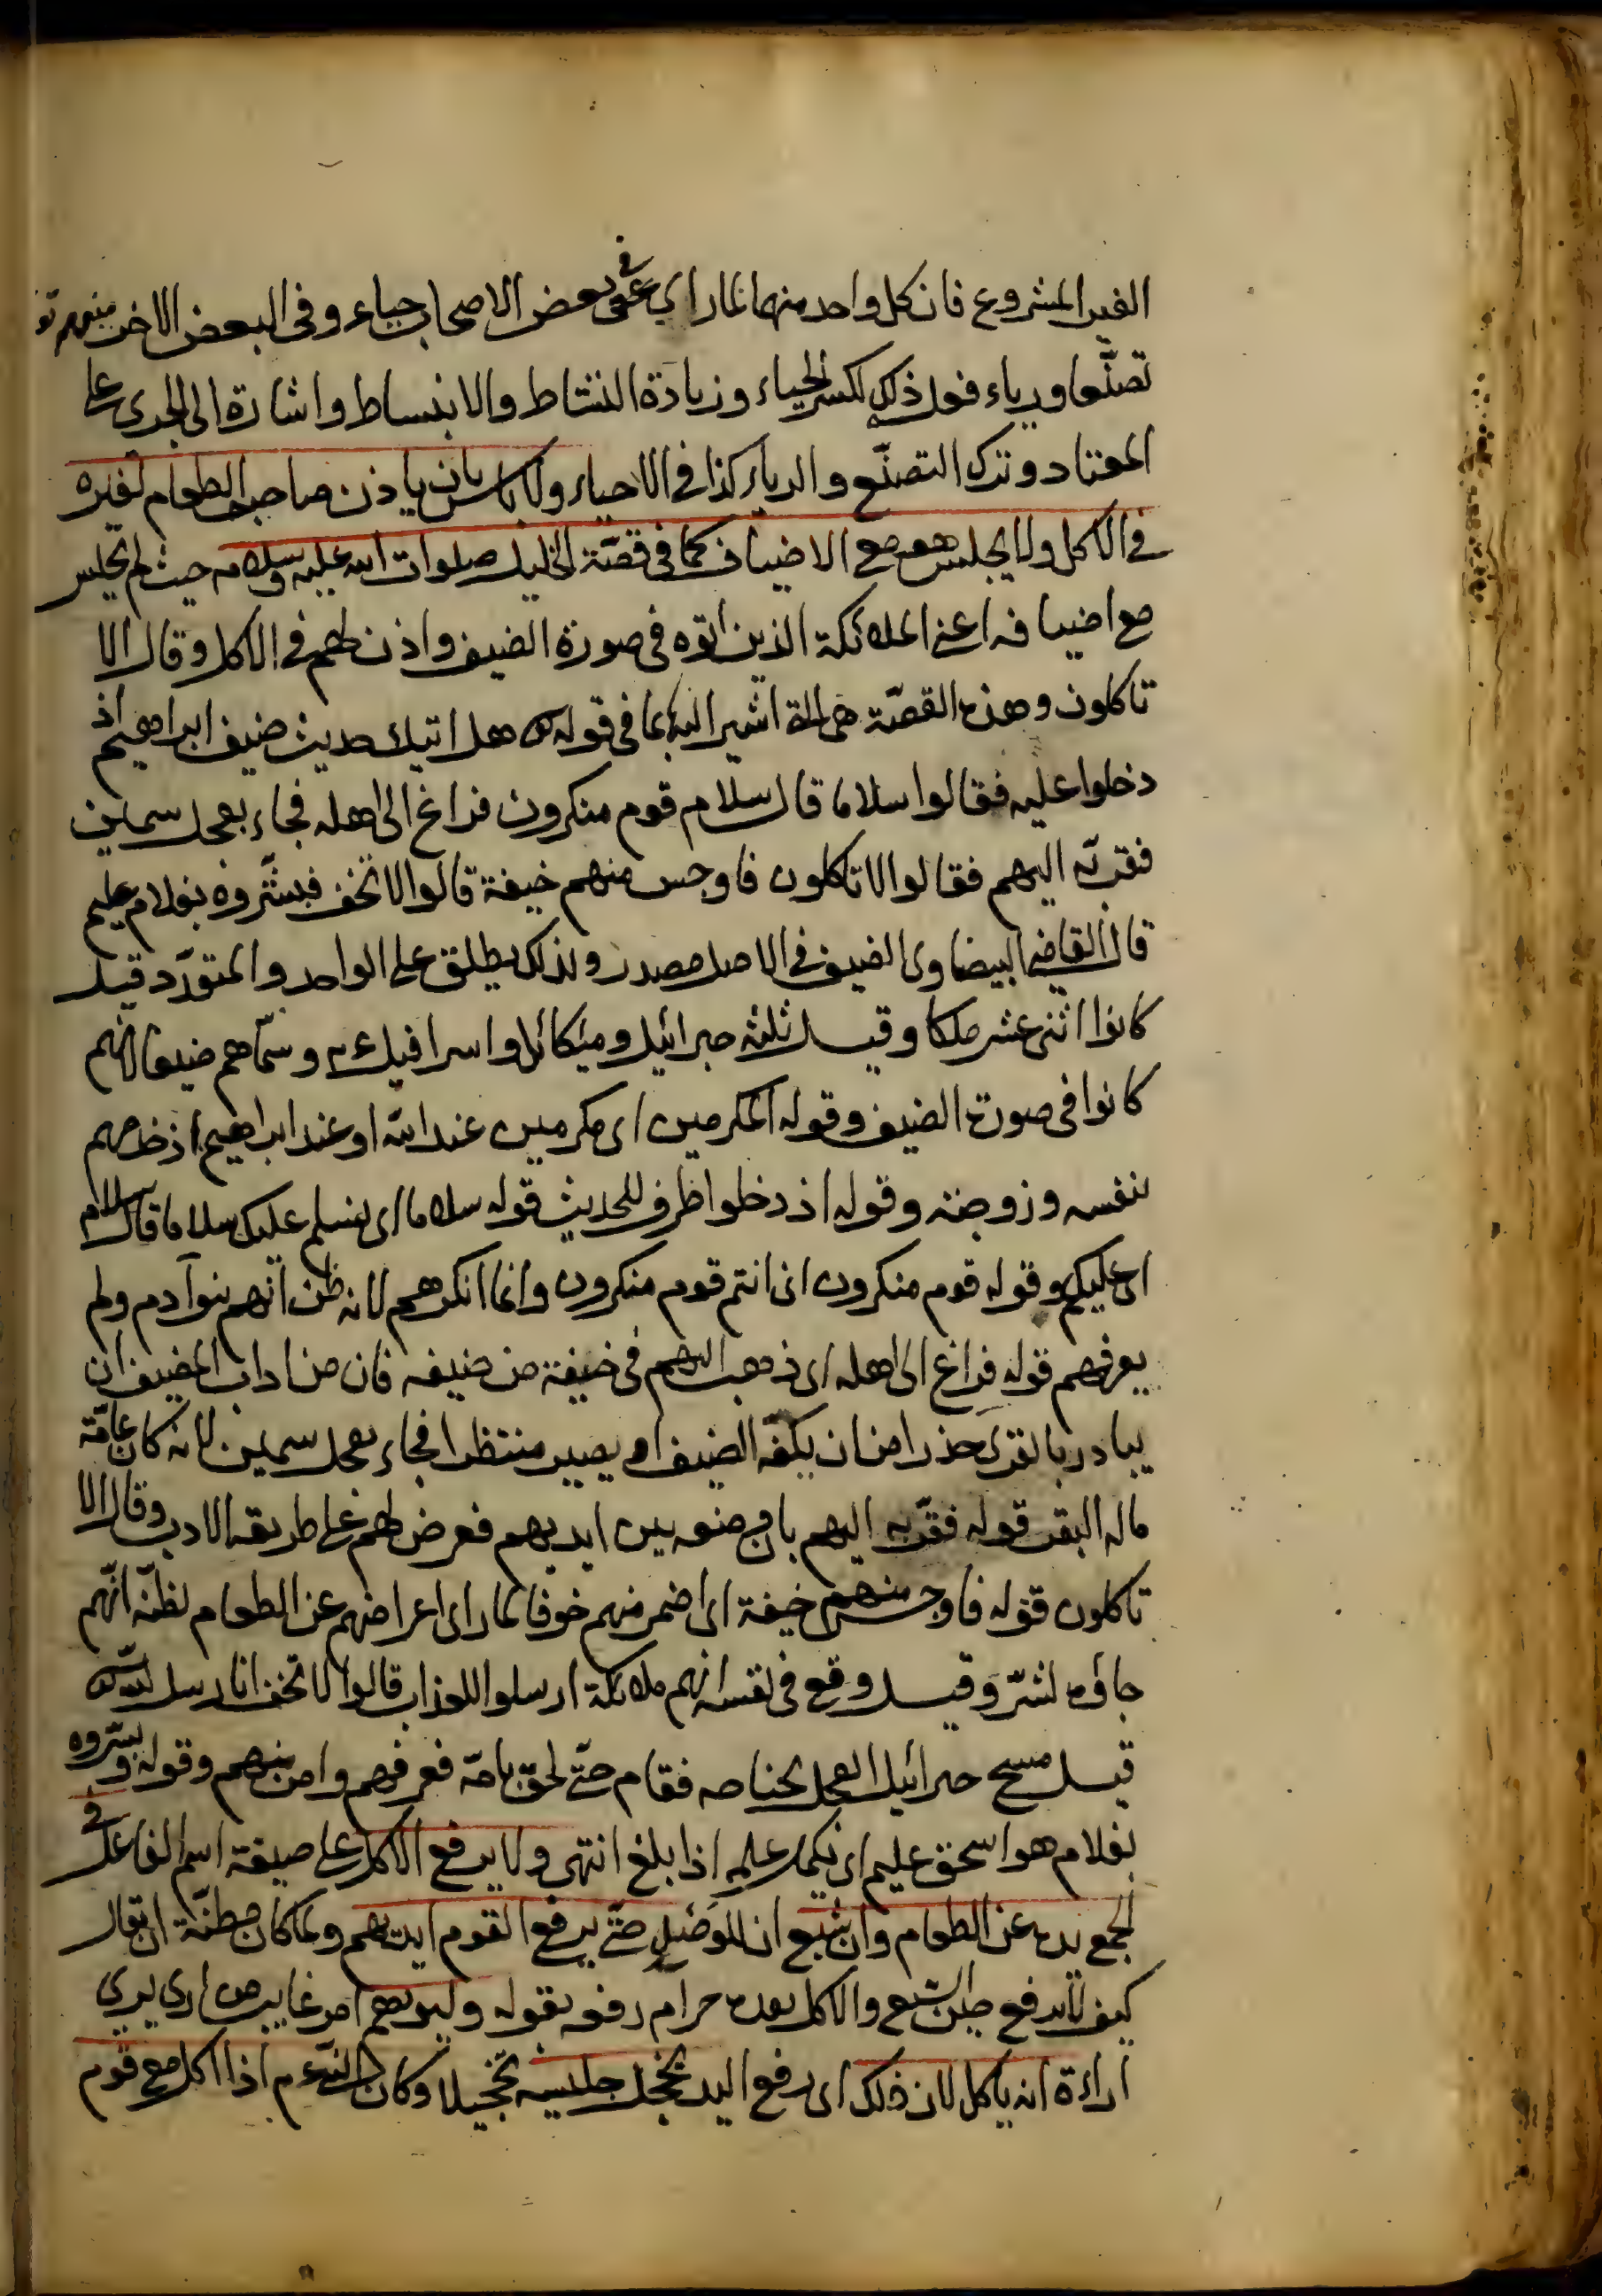 الغير المشروع فان كل واحد منهما لما راى في بعض الاصحاب حياء وفى البعض الاخر منهم
تصنّعا ورياء فعل ذلك لكسر الحياء وزيادة النشاط والانبساط واشارة الى الجرى على
المعتاد وترك التصنّع والرياء كذا فى الاحياء ولا باس بان ياذن صاحب الطعام لغيره
فى الاكل ولا يجلس هو مع الاضياف كما فى قصّة الخليل صلوات الله عليه وسلامه حيث لم يجلس
مع اضيافه اعنى الملائكة الذين اتوه فى صورة الضيف واذن لهم فى الاكل وقال الا
تاكلون وهذه القصّة هى التى اشير اليها فى قوله تع هل اتيك حديث ضيف ابراهيم اذ
دخلوا عليه فقالوا سلاما قال سلام قوم منكرون فراغ الى اهله فجاء بعجل سمين
فقربّه اليهم فقالوا الا تاكلون فاوجس منهم خيفة قالوا لا تخف فبشّروه بغلام عليم
قال القاضى البيضاوى الضيف فى الاصل مصدر ولذلك يطلق على الواحد والمتعدّد قيل
كانوا اثنى عشر ملكا وقيل ثلثة جبرائيل وميكائل واسرافيل وسمّاهم ضيفا لانهم
كانوا فى صورة الضيف وقوله المكرمين اى مكرمين عند الله او عند ابراهيم اذ خدمهم
بنفسه وزوجته وقوله اذ دخلوا ظرف للحديث قوله سلاما اى نسلم عليك سلاما قال سلام
اى عليكم وقوله قوم منكرون اى انتم قوم منكرون وانما انكرهم لانه ظن انّهم بنوآدم ولم
يعرفهم قوله فراغ الى اهله اى ذهب اليهم فى خيفة من ضيفه فان من اداب المضيف ان
يبادر بالقرى حذرا من ان يكفّه الضيف او يصير منتظرا فجاء بعجل سمين لانه كان عامّة
ماله البقر قوله فقرّبه اليهم بان وضعه بين ايديهم فعرض لهم على طريقة الادب وقال الا
تاكلون قوله فاوجس منهم خيفة اى اضمر منهم خوفا لما راى اعراضهم عن الطعام لظنّه انّهم
جاؤه لشرّ وقيل وقع فى نفسه انهم ملائكة ارسلوا للعذاب قالوا لا تخف انا رسل الله تع
قيل مسح جبرائيل العجل بجناحه فقام حتّى لحق بامّه فعرفهم وامن منهم وقوله وبشّروه
بغلام هو اسحق عليم اى يكمل علمه اذا بلغ انتهى ولا يرفع الاكل على صيغة اسم الفاعل فى
الجمع يده عن الطعام وان شبع ان للوصل حتّى يرفع القوم ايديهم ولما كان مظنّة ان يقال
كيف لا يرفع حين الشبع والاكل بعده حرام دفعه بقوله وليريهم امر غايب من ارى يرى
اراءة انه ياكل لان ذلك اى رفع اليد يخجل جليسه تخجيلا وكان النبى عم اذا اكل مع قوم